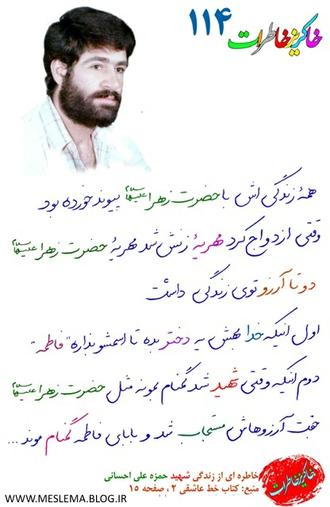 خاکریز خاطرات ۱۱۴
همهٔ زندگی اش با حضرت زهرا علیهاسلام پیوند خورده بود
وقتی ازدواج کرد مهریهٔ زنش شد مهریهٔ حضرت زهرا علیهاسلام
دو تا آرزو توی زندگی داشت
اول اینکه خدا بهش یه دختر بده تا اسمشو بذاره "فاطمه"
دوم اینکه وقتی شهید شد گمنام بمونه مثل حضرت زهرا علیهاسلام
جفت آرزوهاش مستجاب شد و بابای فاطمه گمنام موند ...
خاطره ای از زندگی شهید حمزه علی احسانی
منبع: کتاب خط عاشقی ۲ ، صفحه ۱۵
خاکریز خاطرات
WWW.MESLEMA.BLOG.IR